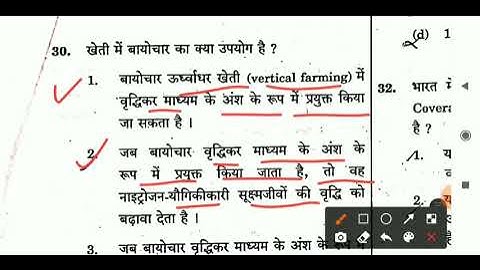 30. खेती में बायोचार का क्या उपयोग है ?
1. बायोचार ऊर्ध्वाधर खेती (vertical farming) में
वृद्धिकर माध्यम के अंश के रूप में प्रयुक्त किया
जा सकता है ।
2. जब बायोचार वृद्धिकर माध्यम के अंश के
रूप में प्रयुक्त किया जाता है, तो वह
नाइट्रोजन-यौगिकीकारी सूक्ष्मजीवों की वृद्धि को
बढ़ावा देता है ।
3. जब बायोचार वृद्धिकर माध्यम के अंश के
(d) 1
32. भारत में
Covera
है ?
1.
2.